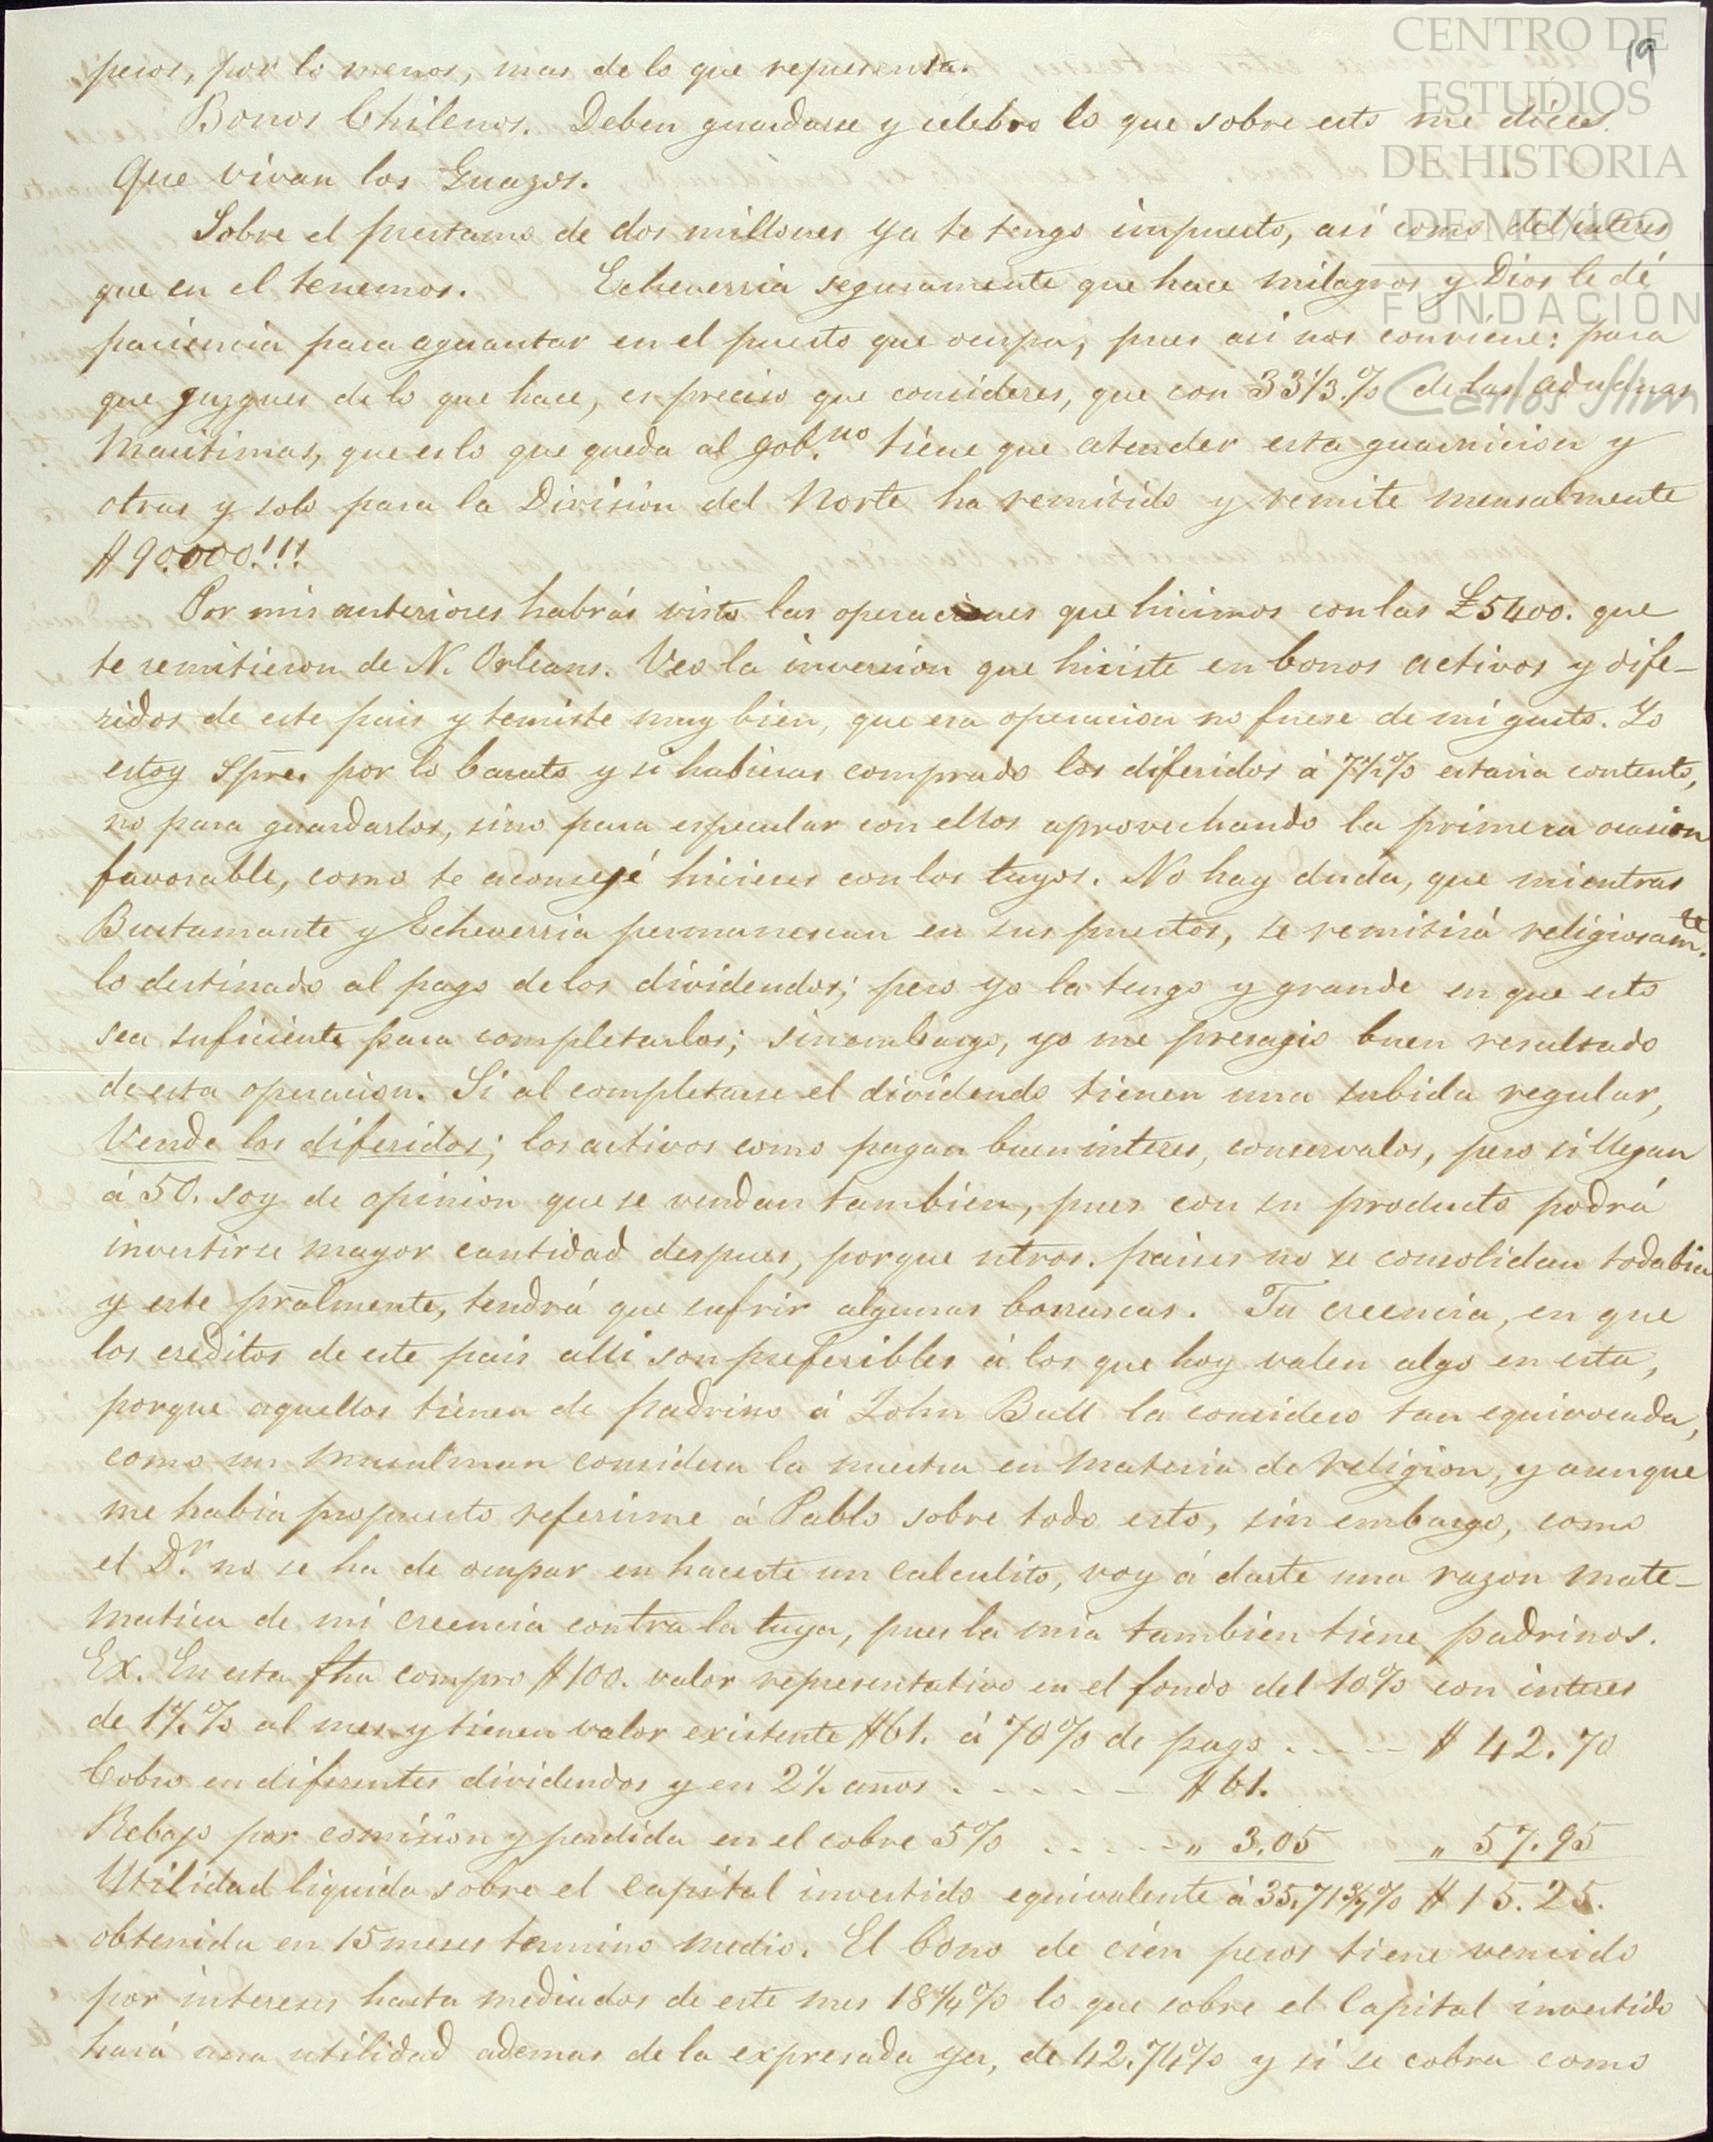 CENTRO DE
ESTUDIOS
DE HISTORIA
DE MEXICO
FUNDACIÓN
Carlos Slim
19
pesos, por lo menos, mas de lo que representa.
Bonos Chilenos. Deben guardarse y celebro lo que sobre esto me dices.
Que vivan los Guazos.
Sobre el prestamo de dos millones ya te tengo impuesto, asi como del interes
que en el tenemos. Echeverria seguramente que hace milagros y Dios le dé
paciencia para aguantar en el puesto que ocupa, pues asi nos conviene: para
que juzgues de lo que hace, es preciso que consideres, que con 33 1/3 % de las aduanas
Maritimas, que es lo que queda al gob.no tiene que atender esta guarnicion y
otras y solo para la Division del Norte ha remitido y remite mensalmente
$90.000!!!
Por mis anteriores habrás visto las operaciones que hicimos con las £5400. que
te remitieron de N. Orleans. Veo la inversion que hiciste en bonos activos y dife-
ridos de este pais y temiste muy bien, que esa operacion no fuese de mi gusto. Yo
estoy Spre. por lo barato y si hubieras comprado los diferidos á 7 1/2 % estaria contento,
no para guardarlos, sino para especular con ellos aprovechando la primera ocasion
favorable, como te aconsejé hicieses con los tuyos. No hay duda, que mientras
Bustamante y Echeverria permanescan en sus puestos, se remitirá religiosam.te
lo destinado al pago de los dividendos; pero yo la tengo y grande en que esto
sea suficiente para completarlos; sin embargo, yo me presagio buen resultado
de esta operacion. Si al completarse el dividendo tienen una subida regular,
Vende los diferidos; los activos como pagan buen interes, conservalos, pero si llegan
á 50. soy de opinion que se vendan tambien, pues con su producto podrá
invertirse mayor cantidad despues, porque ntros. paises no se consolidan todabia
y este pralmente, tendrá que sufrir algunas borrascas. Tu creencia, en que
los creditos de este pais alli son preferibles á los que hoy valen algo en esta,
porque aquellos tienen de padrino á John Bull la considero tan equivocada,
como un Musulman considera la nuestra en materia de religion, y aunque
me habia propuesto referirme á Pablo sobre todo esto, sin embargo, como
el Dr. no se ha de ocupar en hacerte un calculito, voy á darte una razon mate-
matica de mi creencia contra la tuya, pues la mia tambien tiene padrinos.
Ex. En esta fha compro $100. valor representativo en el fondo del 10% con interes
de 1 1/2 % al mes y tienen valor existente $61. á 70% de pago . - - - - $ 42.70
Cobro en diferentes dividendos y en 2 1/2 años . - - - - - $ 61.
Rebajo por comision y perdida en el cobro 5% . - - - - " 3.05 " 57.95
Utilidad liquida sobre el capital invertido equivalente á 35,71 % $ 15.25.
obtenida en 15 meses termino medio. El bono de cien pesos tiene vencido
por intereses hasta mediados de este mes 18 1/4 % lo que sobre el Capital invertido
hará una utilidad ademas de la expresada ya, de 42.74% y si se cobra como